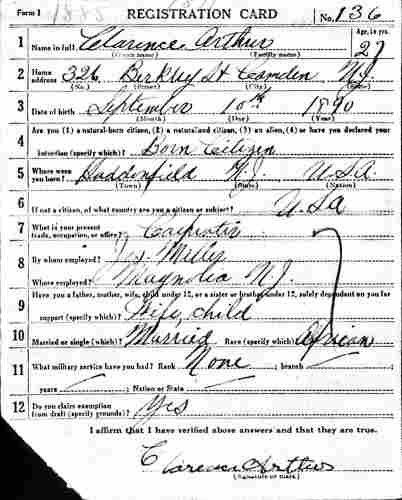 Form 1 REGISTRATION CARD No. 136
1 Name in full Clarence Arthur 27
(Given name) (Family name) Age, in yrs.
2 Home address 326 Berkley St Camden N.J.
(No.) (Street) (City) (State)
3 Date of birth September 10th 1890
(Month) (Day) (Year)
Are you (1) a natural-born citizen, (2) a naturalized citizen, (3) an alien, (4) or have you declared your
4 intention (specify which)? Born Citizen
5 Where were you born? Haddonfield N.J. USA
(Town) (State) (Nation)
6 If not a citizen, of what country are you a citizen or subject? USA
7 What is your present trade, occupation, or office? Carpenter
8 By whom employed? Jos. Milly
Where employed? Magnolia N.J.
9 Have you a father, mother, wife, child under 12, or a sister or brother under 12, solely dependent on you for
support (specify which)? Wife, child
10 Married or single (which)? Married Race (specify which)? African
11 What military service have you had? Rank None ; branch
years ; Nation or State
12 Do you claim exemption from draft (specify grounds)? Yes
I affirm that I have verified above answers and that they are true.
Clarence Arthur
(Signature or mark)